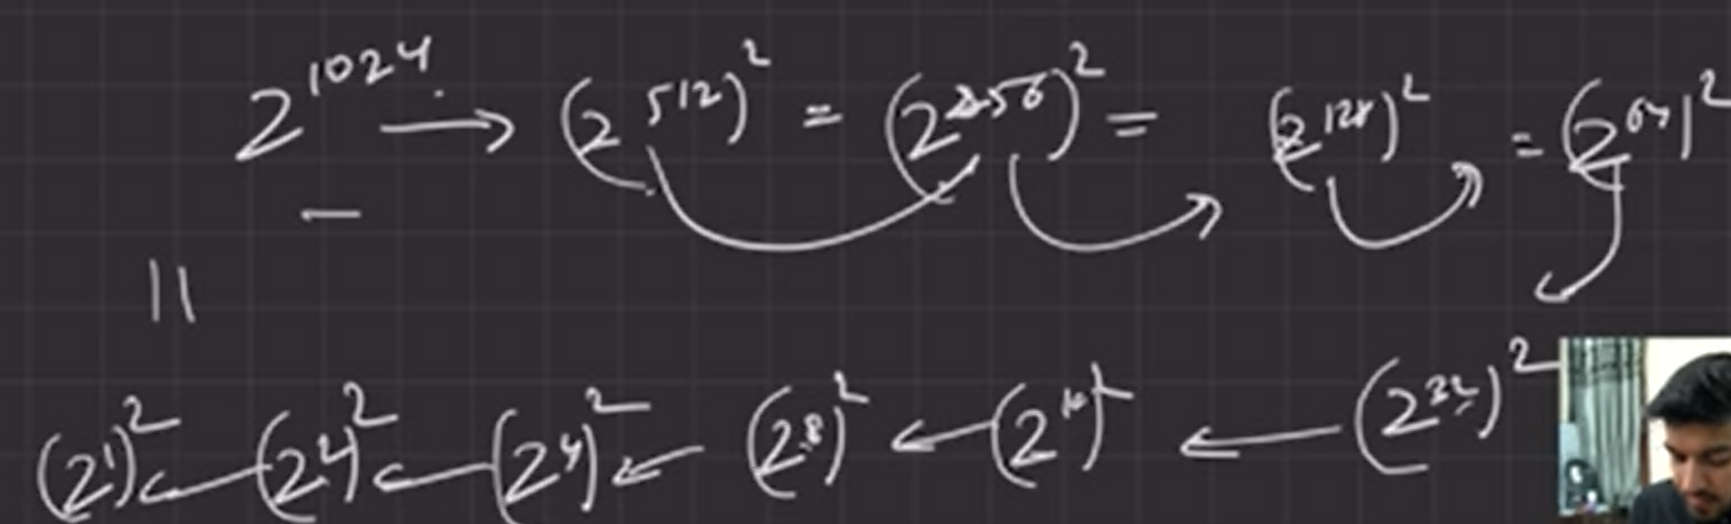 2^1024 → (2^512)^2 = (2^256)^2 = (2^128)^2 = (2^64)^2
—
||
(2^1)^2 ← (2^2)^2 ← (2^4)^2 ← (2^8)^2 ← (2^16)^2 ← (2^32)^2